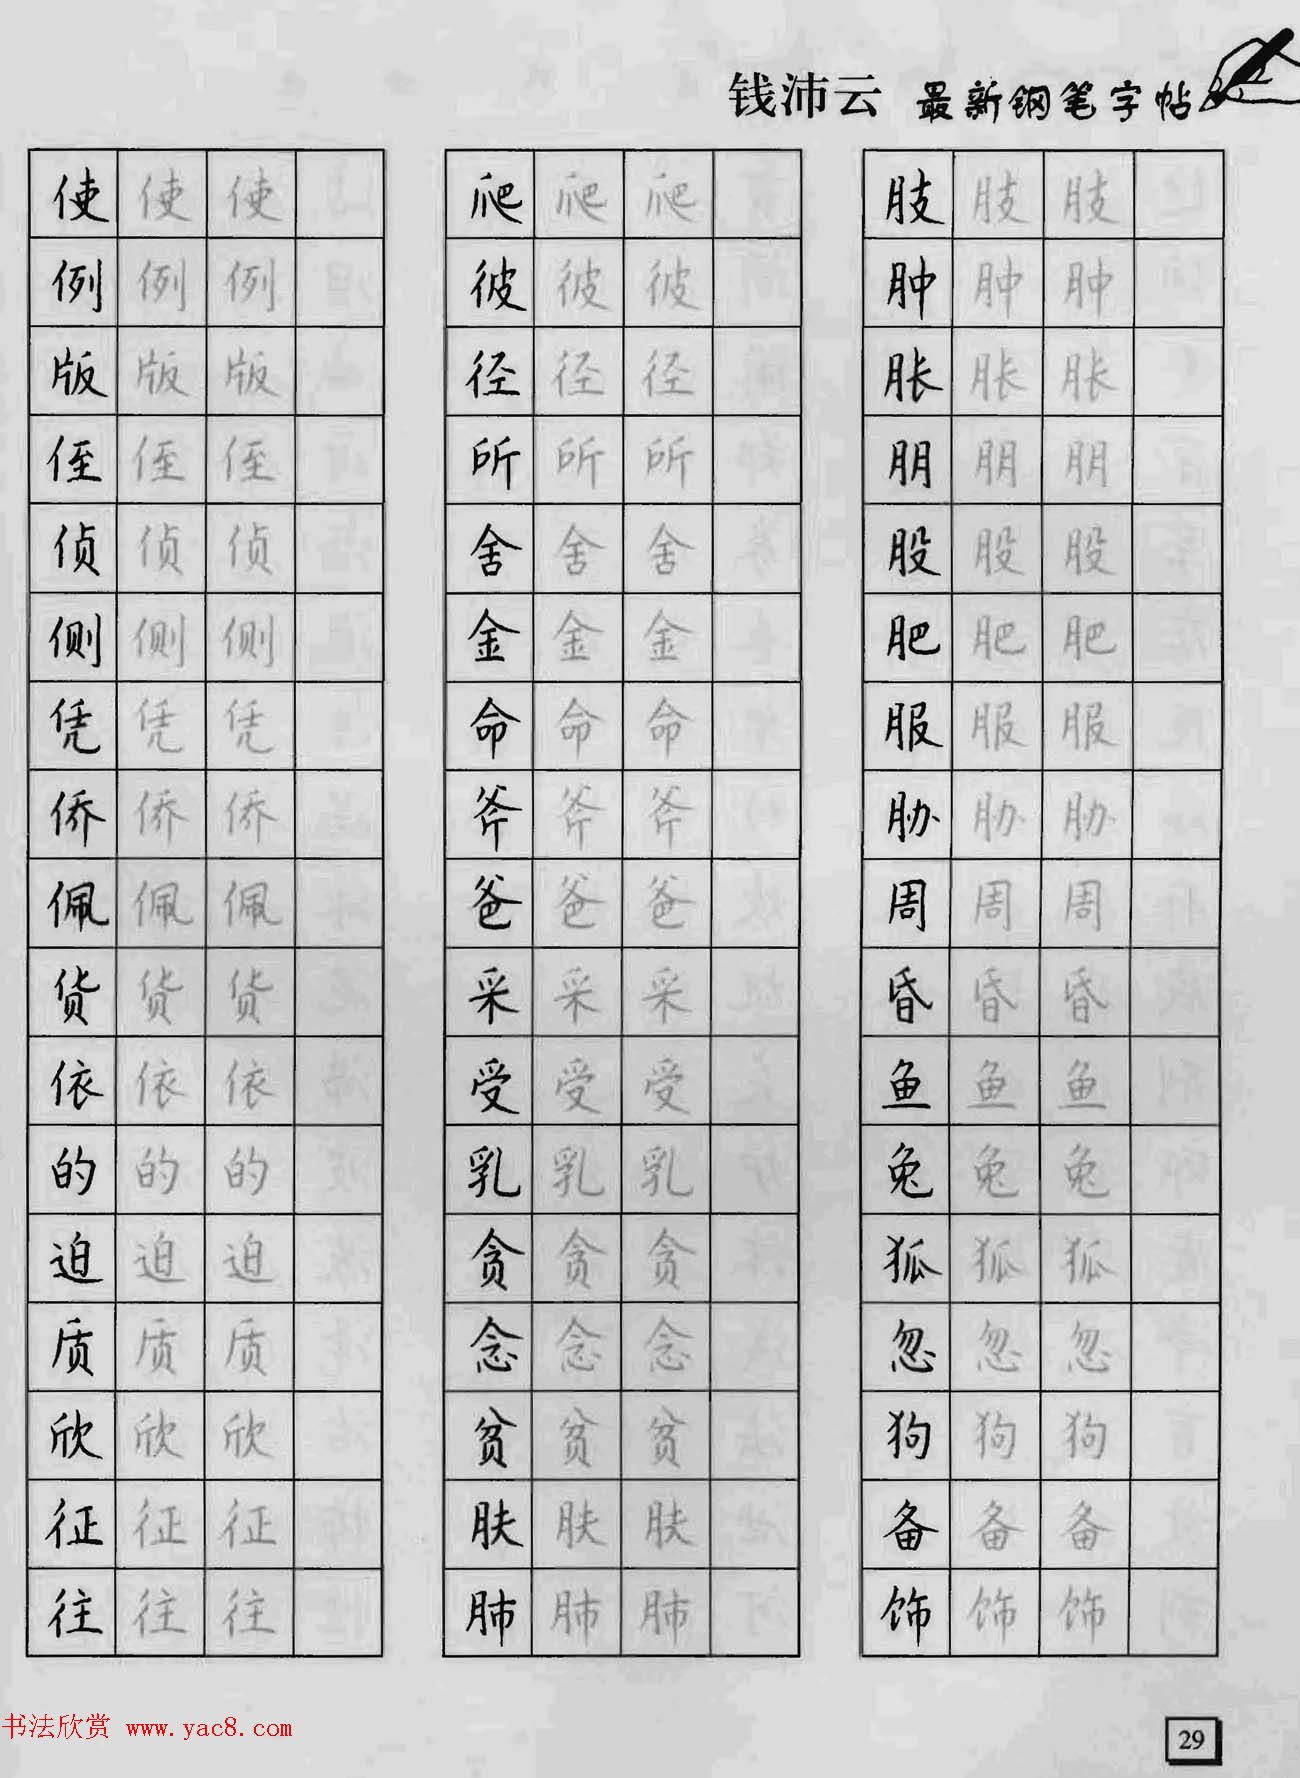 钱沛云 最新钢笔字帖
使 使 使 爬 爬 爬 肢 肢 肢
例 例 例 彼 彼 彼 肿 肿 肿
版 版 版 径 径 径 胀 胀 胀
侄 侄 侄 所 所 所 朋 朋 朋
侦 侦 侦 舍 舍 舍 股 股 股
侧 侧 侧 金 金 金 肥 肥 肥
凭 凭 凭 命 命 命 服 服 服
侨 侨 侨 斧 斧 斧 胁 胁 胁
佩 佩 佩 爸 爸 爸 周 周 周
货 货 货 采 采 采 昏 昏 昏
依 依 依 受 受 受 鱼 鱼 鱼
的 的 的 乳 乳 乳 兔 兔 兔
迫 迫 迫 贪 贪 贪 狐 狐 狐
质 质 质 念 念 念 忽 忽 忽
欣 欣 欣 贫 贫 贫 狗 狗 狗
征 征 征 肤 肤 肤 备 备 备
往 往 往 肺 肺 肺 饰 饰 饰
书法欣赏 www.yac8.com
29